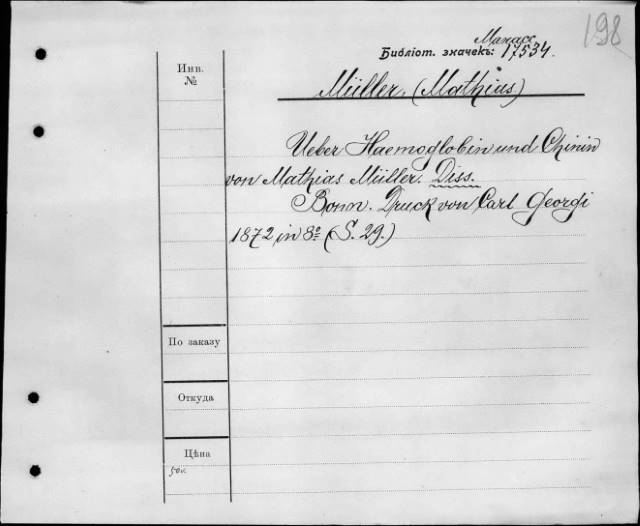 198
Манасс
Библіот. значекъ: 17534.
Инв.
№
Müller, (Mathias)
Ueber Haemoglobin und Chinin
von Mathias Müller. Diss.
Bonn. Druck von Carl Georgi
1872 in 8º (S. 29.)
По заказу
Откуда
Цѣна
50к